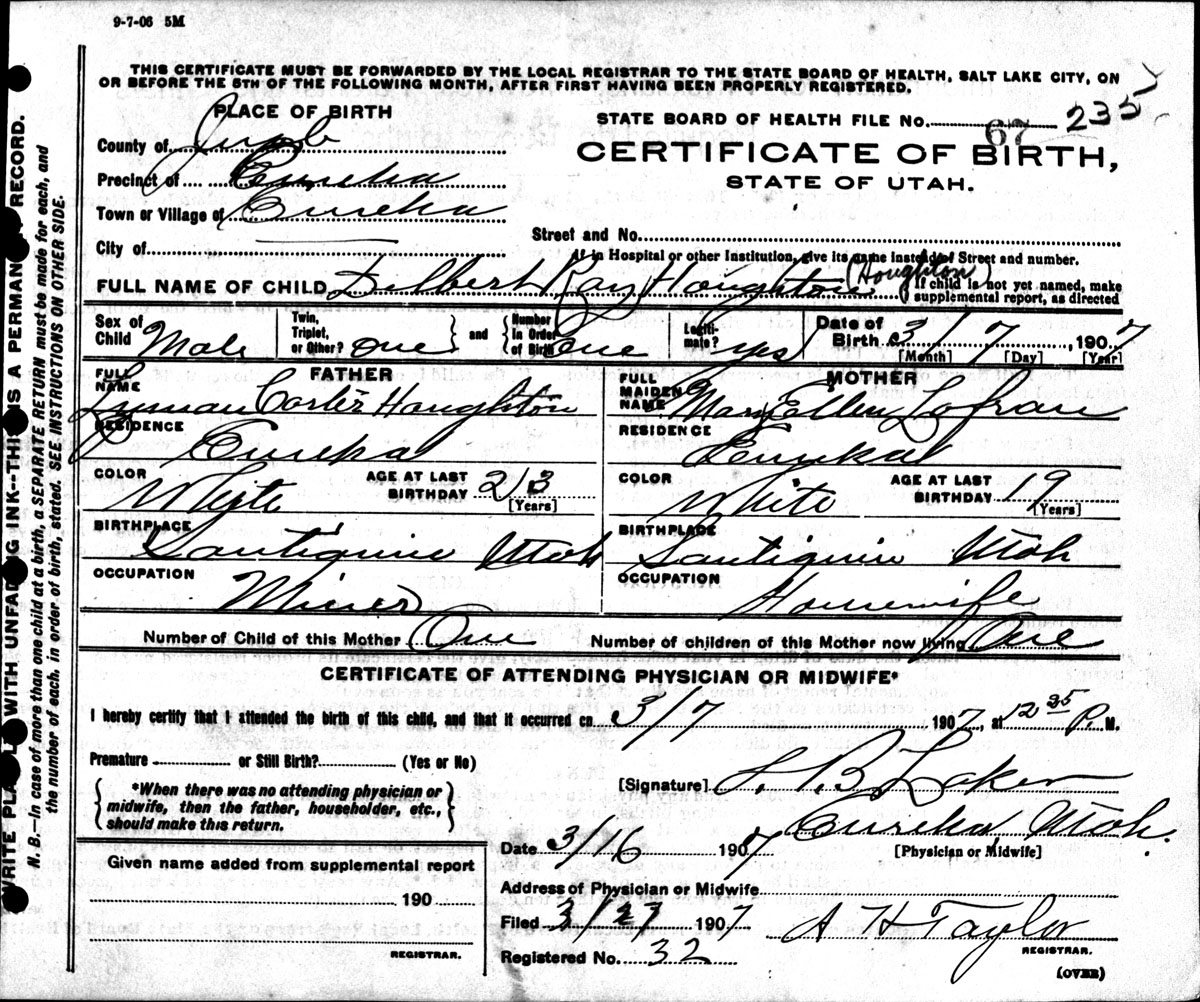 9-7-06 5M
THIS CERTIFICATE MUST BE FORWARDED BY THE LOCAL REGISTRAR TO THE STATE BOARD OF HEALTH, SALT LAKE CITY, ON
OR BEFORE THE 5TH OF THE FOLLOWING MONTH, AFTER FIRST HAVING BEEN PROPERLY REGISTERED.
PLACE OF BIRTH
County of Juab
Precinct of Eureka
Town or Village of Eureka
City of
STATE BOARD OF HEALTH FILE No. 67 235
CERTIFICATE OF BIRTH,
STATE OF UTAH.
Street and No.
If in Hospital or other Institution, give its name instead of Street and number.
FULL NAME OF CHILD Delbert Ray Houghton (Houghton)
If child is not yet named, make
supplemental report, as directed
Sex of Child Male
Twin, Triplet, or Other? one and Number in Order of Birth one
Legiti-mate? yes
Date of Birth 3/7, 1907
[Month] [Day] [Year]
FATHER
FULL NAME Lyman Carter Houghton
RESIDENCE Eureka
COLOR White AGE AT LAST BIRTHDAY 23 [Years]
BIRTHPLACE Santiquin Utah
OCCUPATION Miner
MOTHER
FULL MAIDEN NAME Mary Ellen Lofran
RESIDENCE Eureka
COLOR White AGE AT LAST BIRTHDAY 19 [Years]
BIRTHPLACE Santiquin Utah
OCCUPATION Housewife
Number of Child of this Mother One Number of children of this Mother now living One
CERTIFICATE OF ATTENDING PHYSICIAN OR MIDWIFE*
I hereby certify that I attended the birth of this child, and that it occurred on 3/7 1907, at 12 35 P. M.
Premature or Still Birth? (Yes or No)
*When there was no attending physician or
midwife, then the father, householder, etc.,
should make this return.
[Signature] B Laker
Eureka Utah.
Date 3/16 1907 [Physician or Midwife]
Address of Physician or Midwife
Given name added from supplemental report
190
REGISTRAR.
Filed 3/27 1907 A H Taylor
REGISTRAR.
Registered No. 32
(OVER)
WRITE PLAINLY WITH UNFADING INK--THIS IS A PERMANENT RECORD.
N. B.—In case of more than one child at a birth, a SEPARATE RETURN must be made for each, and
the number of each, in order of birth, stated. SEE INSTRUCTIONS ON OTHER SIDE.